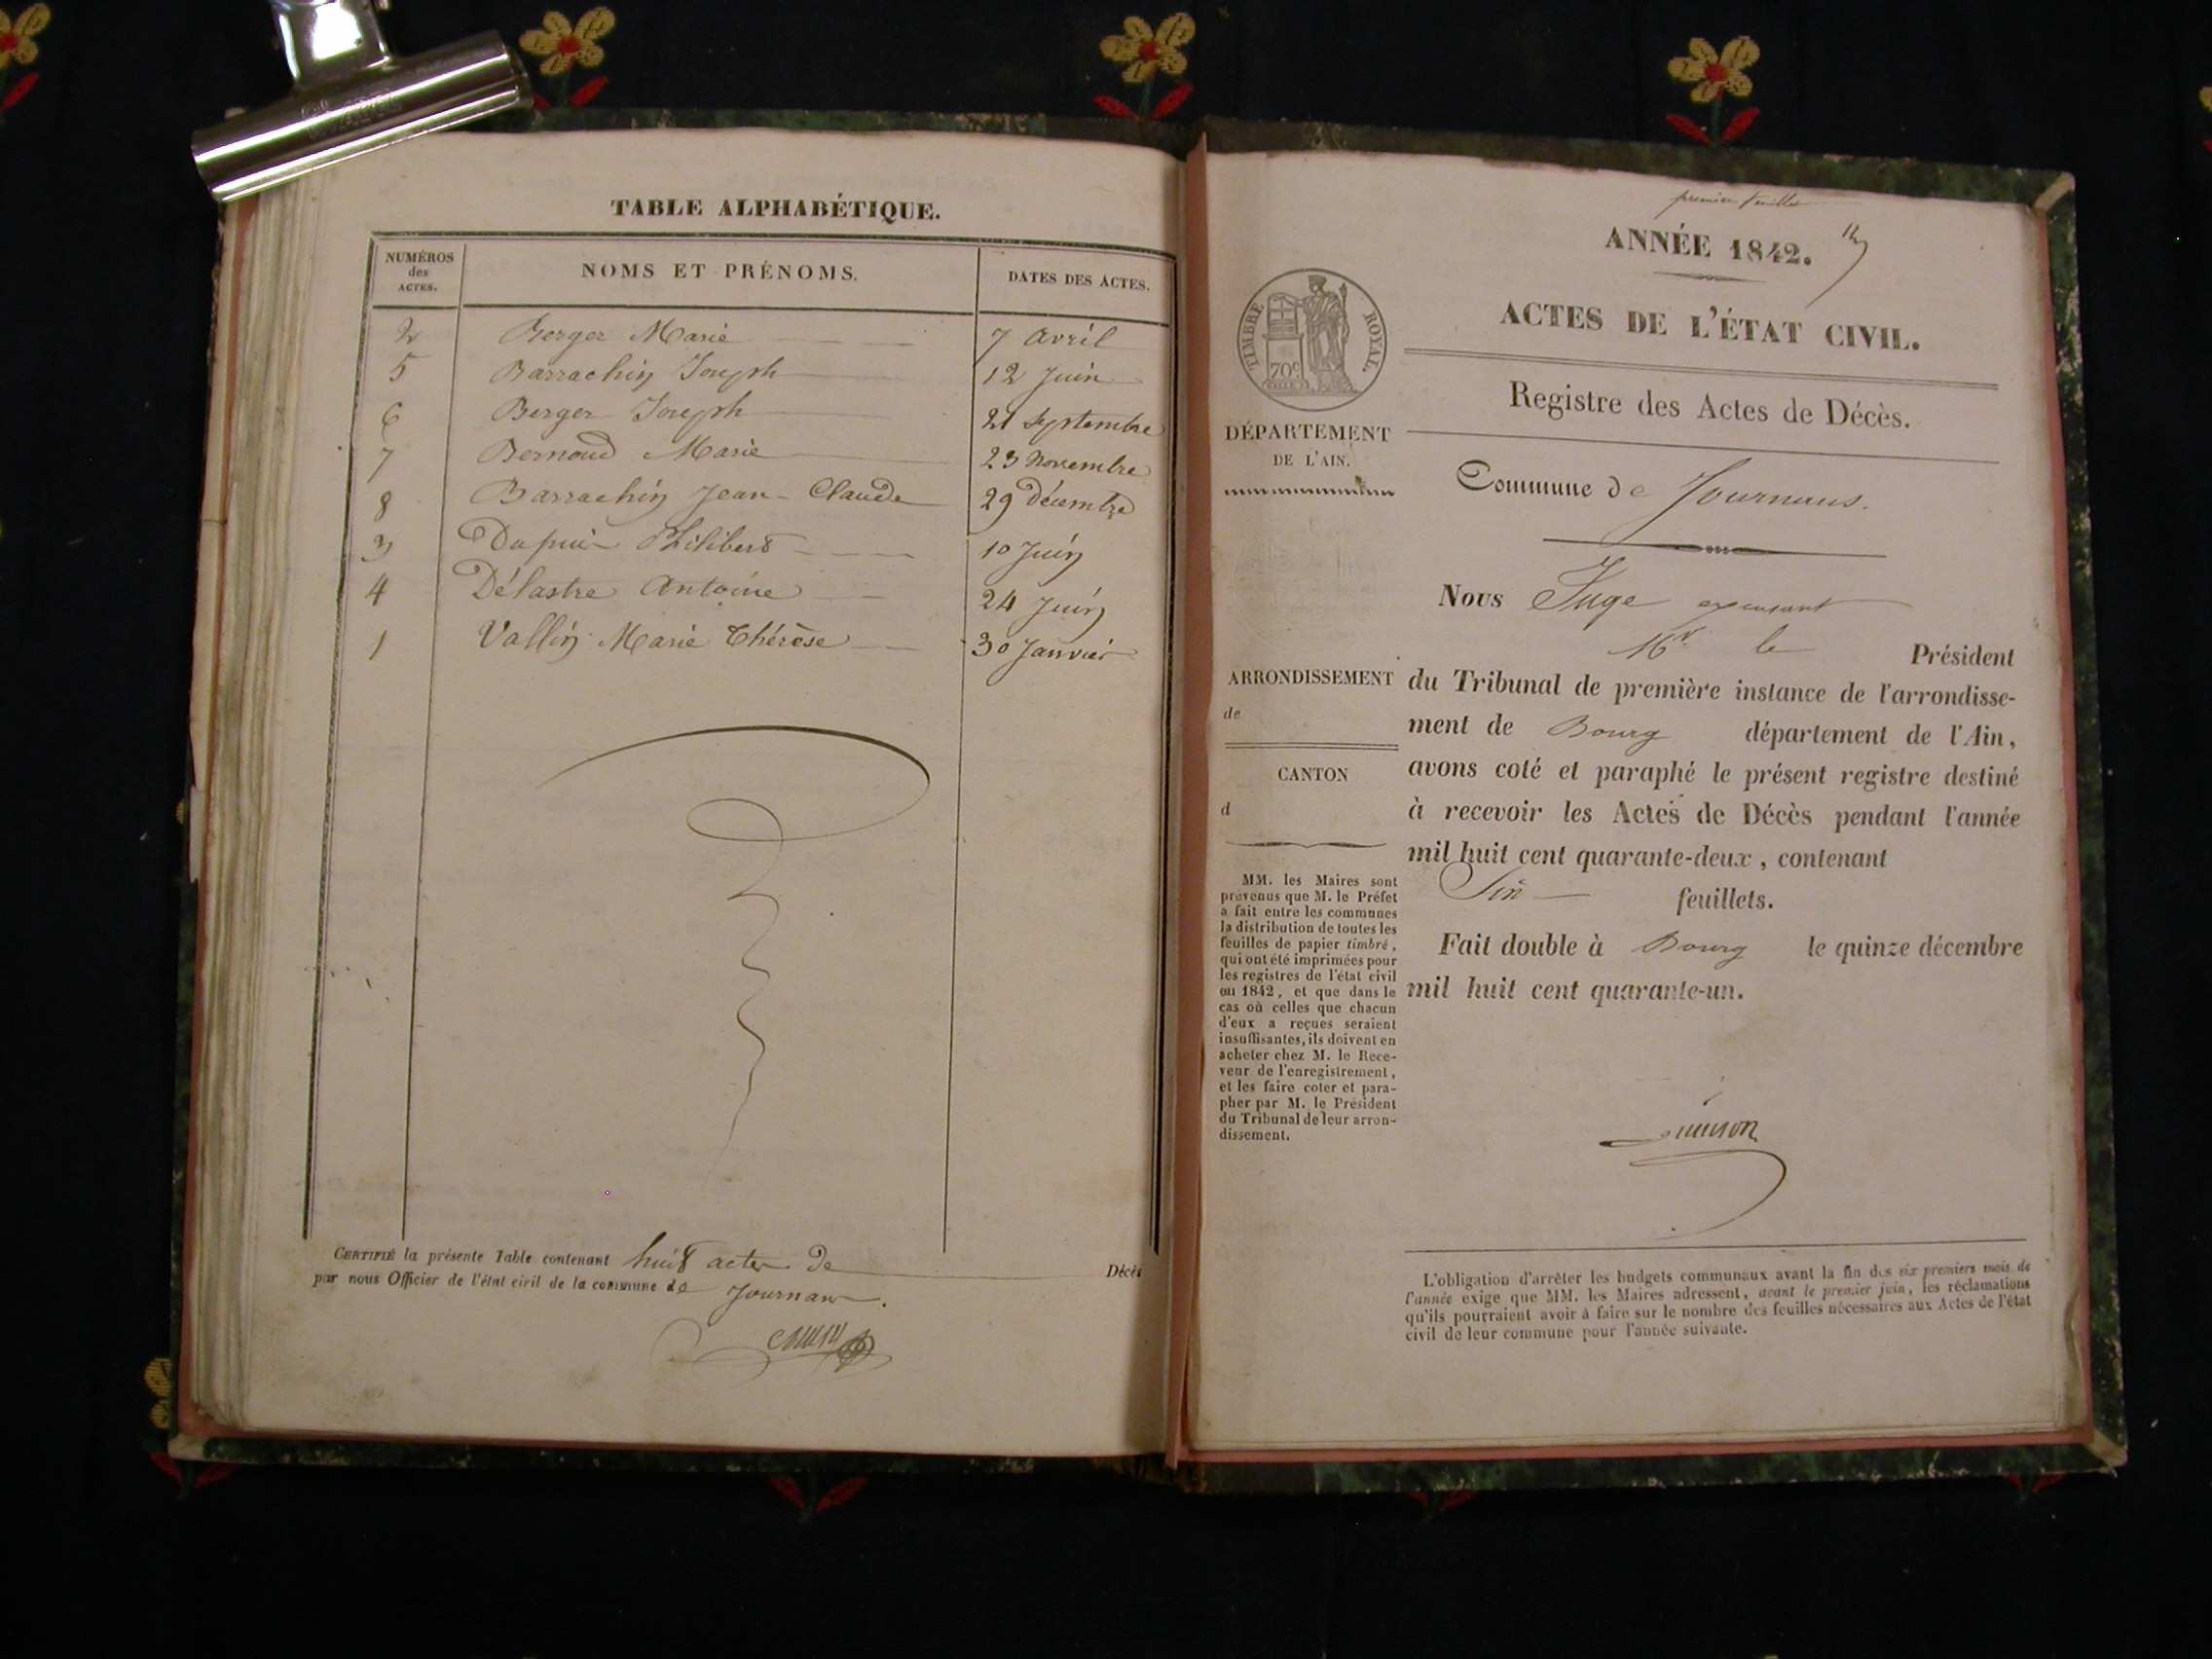 TABLE ALPHABÉTIQUE.
NUMÉROS des ACTES. NOMS ET PRÉNOMS. DATES DES ACTES.
2 Berger Marie 7 Avril
5 Barrachin Joseph 12 Juin
6 Berger Joseph 21 Septembre
7 Bernoud Marie 23 Novembre
8 Barrachin Jean-Claude 29 Décembre
3 Dupuis Philibert 10 Juin
4 Délastre Antoine 24 Juin
1 Vallin Marie Thérèse 30 Janvier
CERTIFIÉ la présente Table contenant huit actes de Décès
par nous Officier de l'état civil de la commune de Journans.
premier feuillet
ANNÉE 1842.
ACTES DE L'ÉTAT CIVIL.
TIMBRE ROYAL.
70c
Registre des Actes de Décès.
DÉPARTEMENT
DE L'AIN.
Commune de Journans.
Nous Juge
Mr le Président
ARRONDISSEMENT
de
CANTON
d
du Tribunal de première instance de l'arrondisse-
ment de Bourg département de l'Ain,
avons coté et paraphé le présent registre destiné
à recevoir les Actes de Décès pendant l'année
mil huit cent quarante-deux, contenant
feuillets.
Fait double à Bourg le quinze décembre
mil huit cent quarante-un.
MM. les Maires sont
prévenus que M. le Préfet
a fait entre les communes
la distribution de toutes les
feuilles de papier timbré,
qui ont été imprimées pour
les registres de l'état civil
en 1842, et que dans le
cas où celles que chacun
d'eux a reçues seraient
insuffisantes, ils doivent en
acheter chez M. le Rece-
veur de l'enregistrement,
et les faire coter et para-
pher par M. le Président
du Tribunal de leur arron-
dissement.
L'obligation d'arrêter les budgets communaux avant la fin des six premiers mois de
l'année exige que MM. les Maires adressent, avant le premier juin, les réclamations
qu'ils pourraient avoir à faire sur le nombre des feuilles nécessaires aux Actes de l'état
civil de leur commune pour l'année suivante.